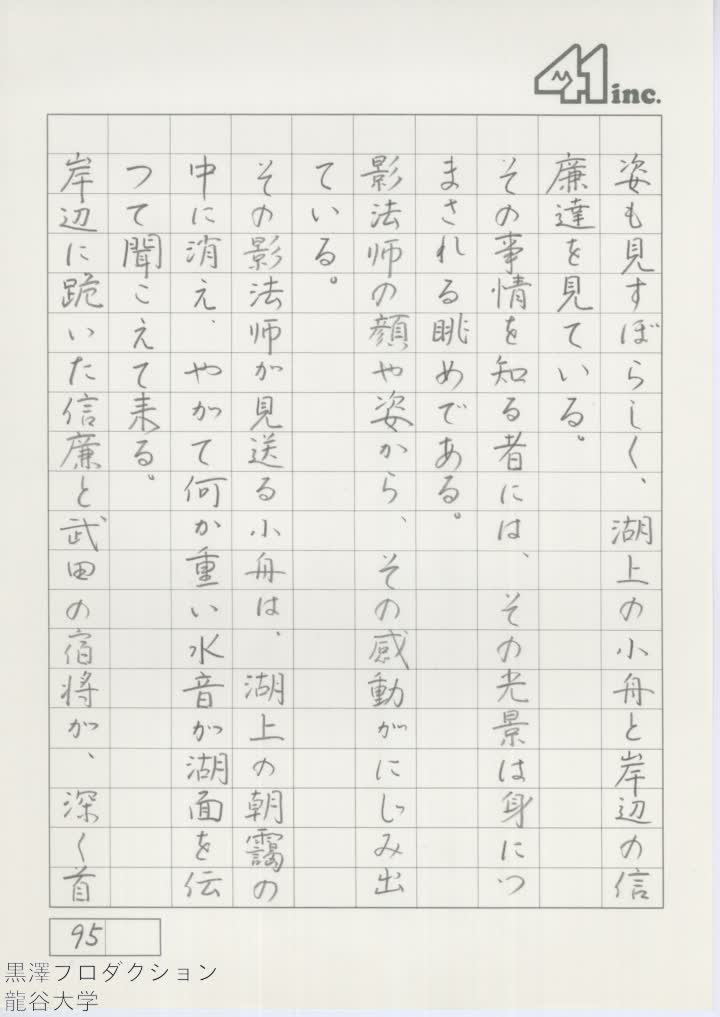 41 inc.
姿も見すぼらしく、湖上の小舟と岸辺の信
廉達を見ている。
その事情を知る者には、その光景は身につ
まされる眺めである。
影法師の顔や姿から、その感動がにじみ出
ている。
その影法師が見送る小舟は、湖上の朝靄の
中に消え、やがて何か重い水音が湖面を伝
つて聞こえて来る。
岸辺に跪いた信廉と武田の宿将が、深く首
95
黒澤プロダクション
龍谷大学